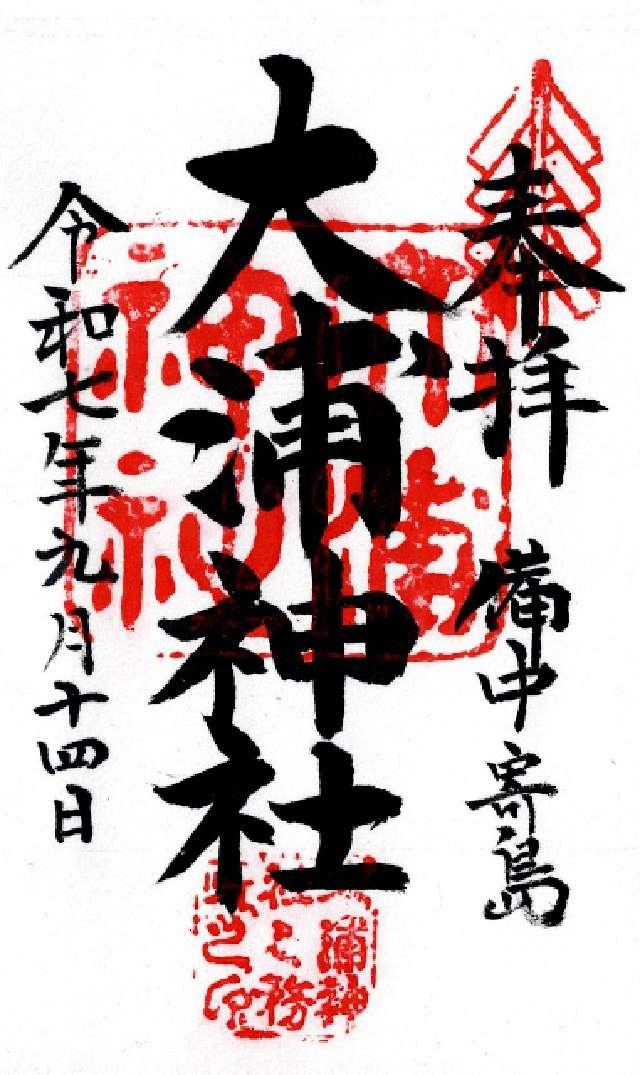 奉拝 備中寄島
大浦神社
令和七年九月十四日
大浦
神社